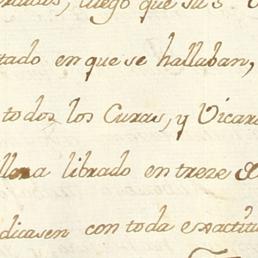 luego que su
tado en que se hallaban,
todos los Curas, y Vicar
librado en treze
dicasen con toda exactitu